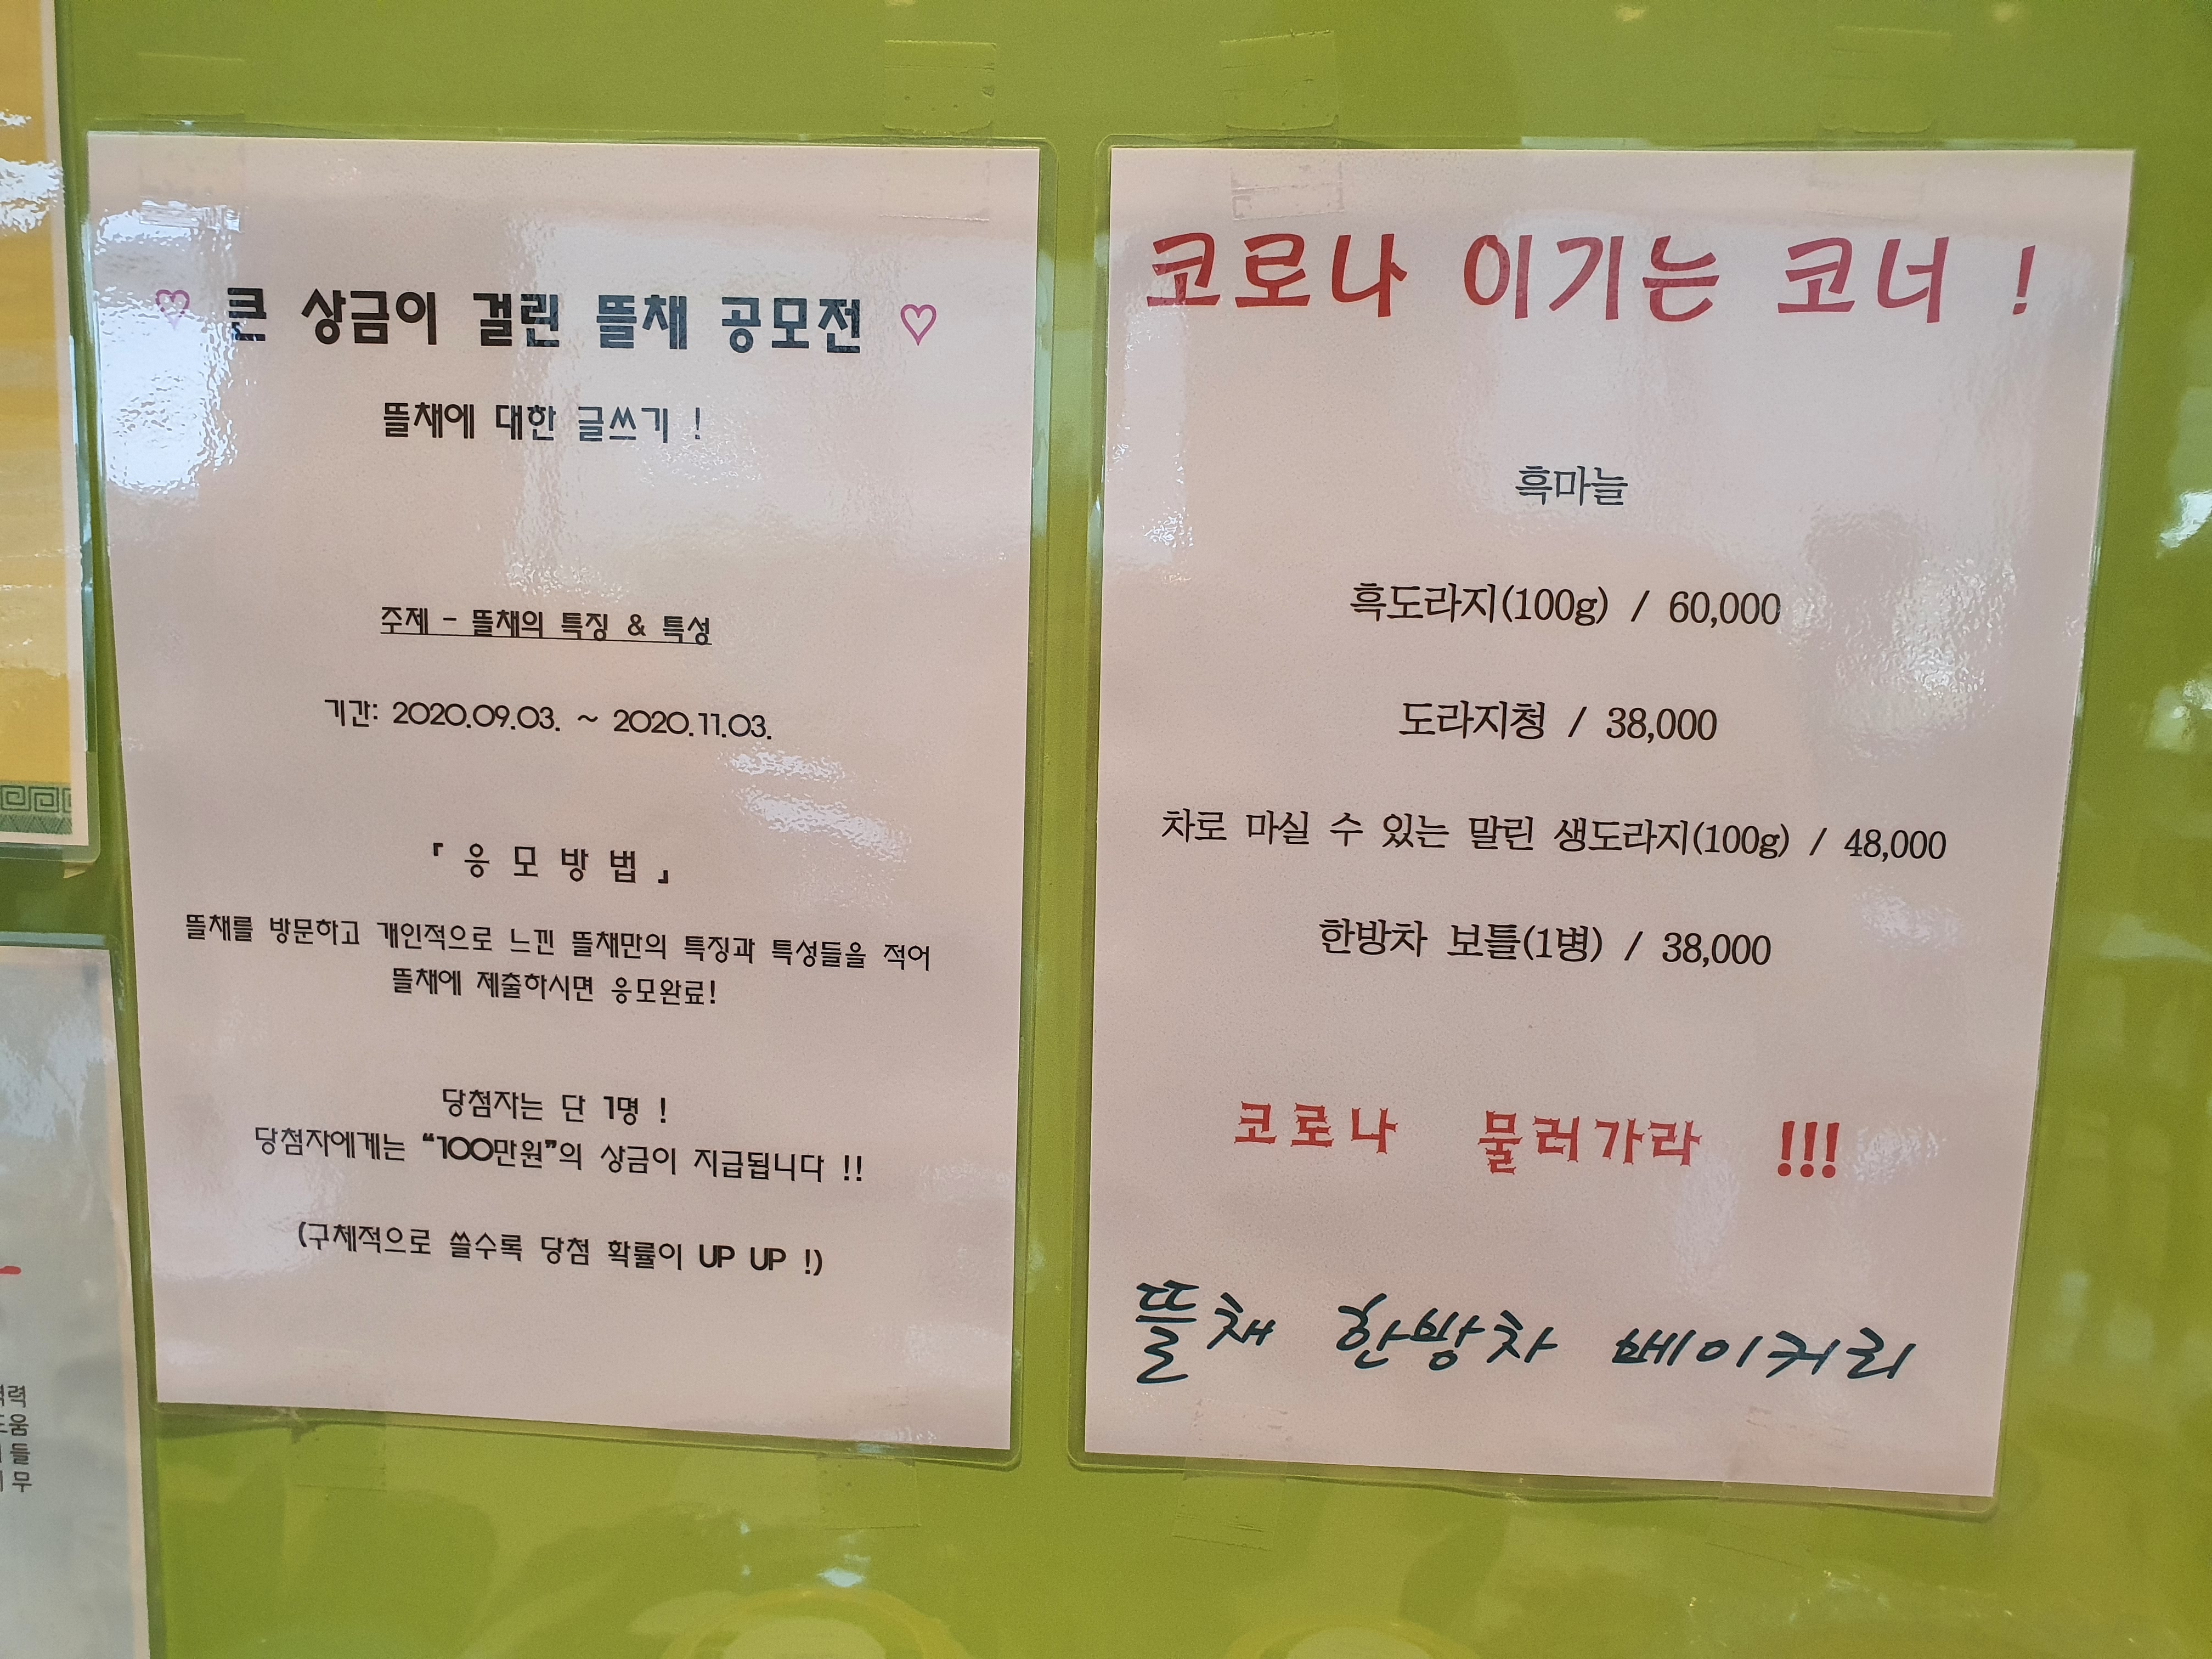 ♡ 큰 상금이 걸린 뜰채 공모전 ♡
뜰채에 대한 글쓰기 !
주제 - 뜰채의 특징 & 특성
기간: 2020.09.03. ~ 2020.11.03.
『 응 모 방 법 』
뜰채를 방문하고 개인적으로 느낀 뜰채만의 특징과 특성들을 적어
뜰채에 제출하시면 응모완료!
당첨자는 단 1명 !
당첨자에게는 “100만원”의 상금이 지급됩니다 !!
(구체적으로 쓸수록 당첨 확률이 UP UP !)
코로나 이기는 코너 !
흑마늘
흑도라지(100g) / 60,000
도라지청 / 38,000
차로 마실 수 있는 말린 생도라지(100g) / 48,000
한방차 보틀(1병) / 38,000
코로나 물러가라 !!!
뜰채 한방차 베이커리
력
움
들
무